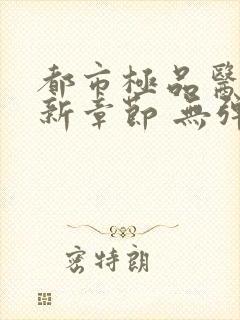 都市極品醫
新章節 無彈
密特朗